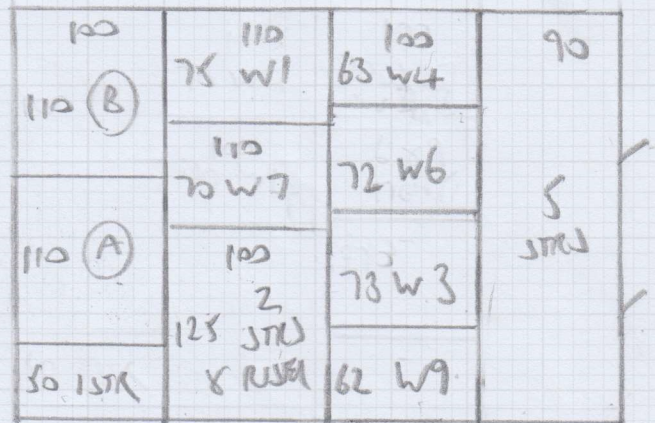 100
110 B
110 A
50 1 STR
110
75 W1
110
70 W7
100
2
125 STRS
8 RISER
100
63 W4
72 W6
73 W3
62 W9
90
5
STRS